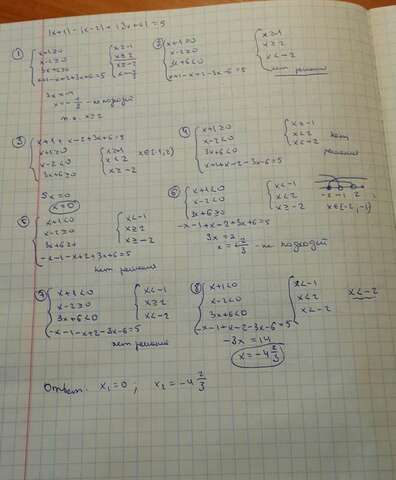 |x+1| - |x-2| + |3x+6| = 5
① { x+1≥0
x-2≥0
3x+6≥0
x+1-x+2+3x+6=5
{ x≥-1
x≥2
x≥-2
3x=-4
- не подходит
т.к. x≥2
② { x+1≥0
x-2≥0
x+1-x+2-3x-6=5
{ x≥-1
x≥2
x<-2
нет решений
③ { x+1+x-2+3x+6=5
x+1≥0
x-2<0
3x+6≥0
{ x≥-1
x<2
x≥-2
x∈[-1;2)
5x=0
x=0
④ { x+1≥0
x-2<0
3x+6<0
x+1+x-2-3x-6=5
{ x≥-1
x<2
x<-2
нет
решений
⑤ { x+1<0
x-2≥0
3x+6≥0
-x-1-x+2+3x+6=5
{ x<-1
x≥2
x≥-2
нет решений
⑥ { x+1<0
x-2<0
3x+6≥0
-x-1+x-2+3x+6=5
{ x<-1
x<2
x≥-2
-2 -1 2
x∈[-2;-1)
3x=2
x=2/3 - не подходит
⑦ { x+1<0
x-2≥0
3x+6<0
-x-1-x+2-3x-6=5
{ x<-1
x≥2
x<-2
нет решений
⑧ { x+1<0
x-2<0
3x+6<0
-x-1+x-2-3x-6=5
{ x<-1
x<2
x<-2
x<-2
-3x=14
x=-4 2/3
Ответ: x₁=0; x₂=-4 2/3